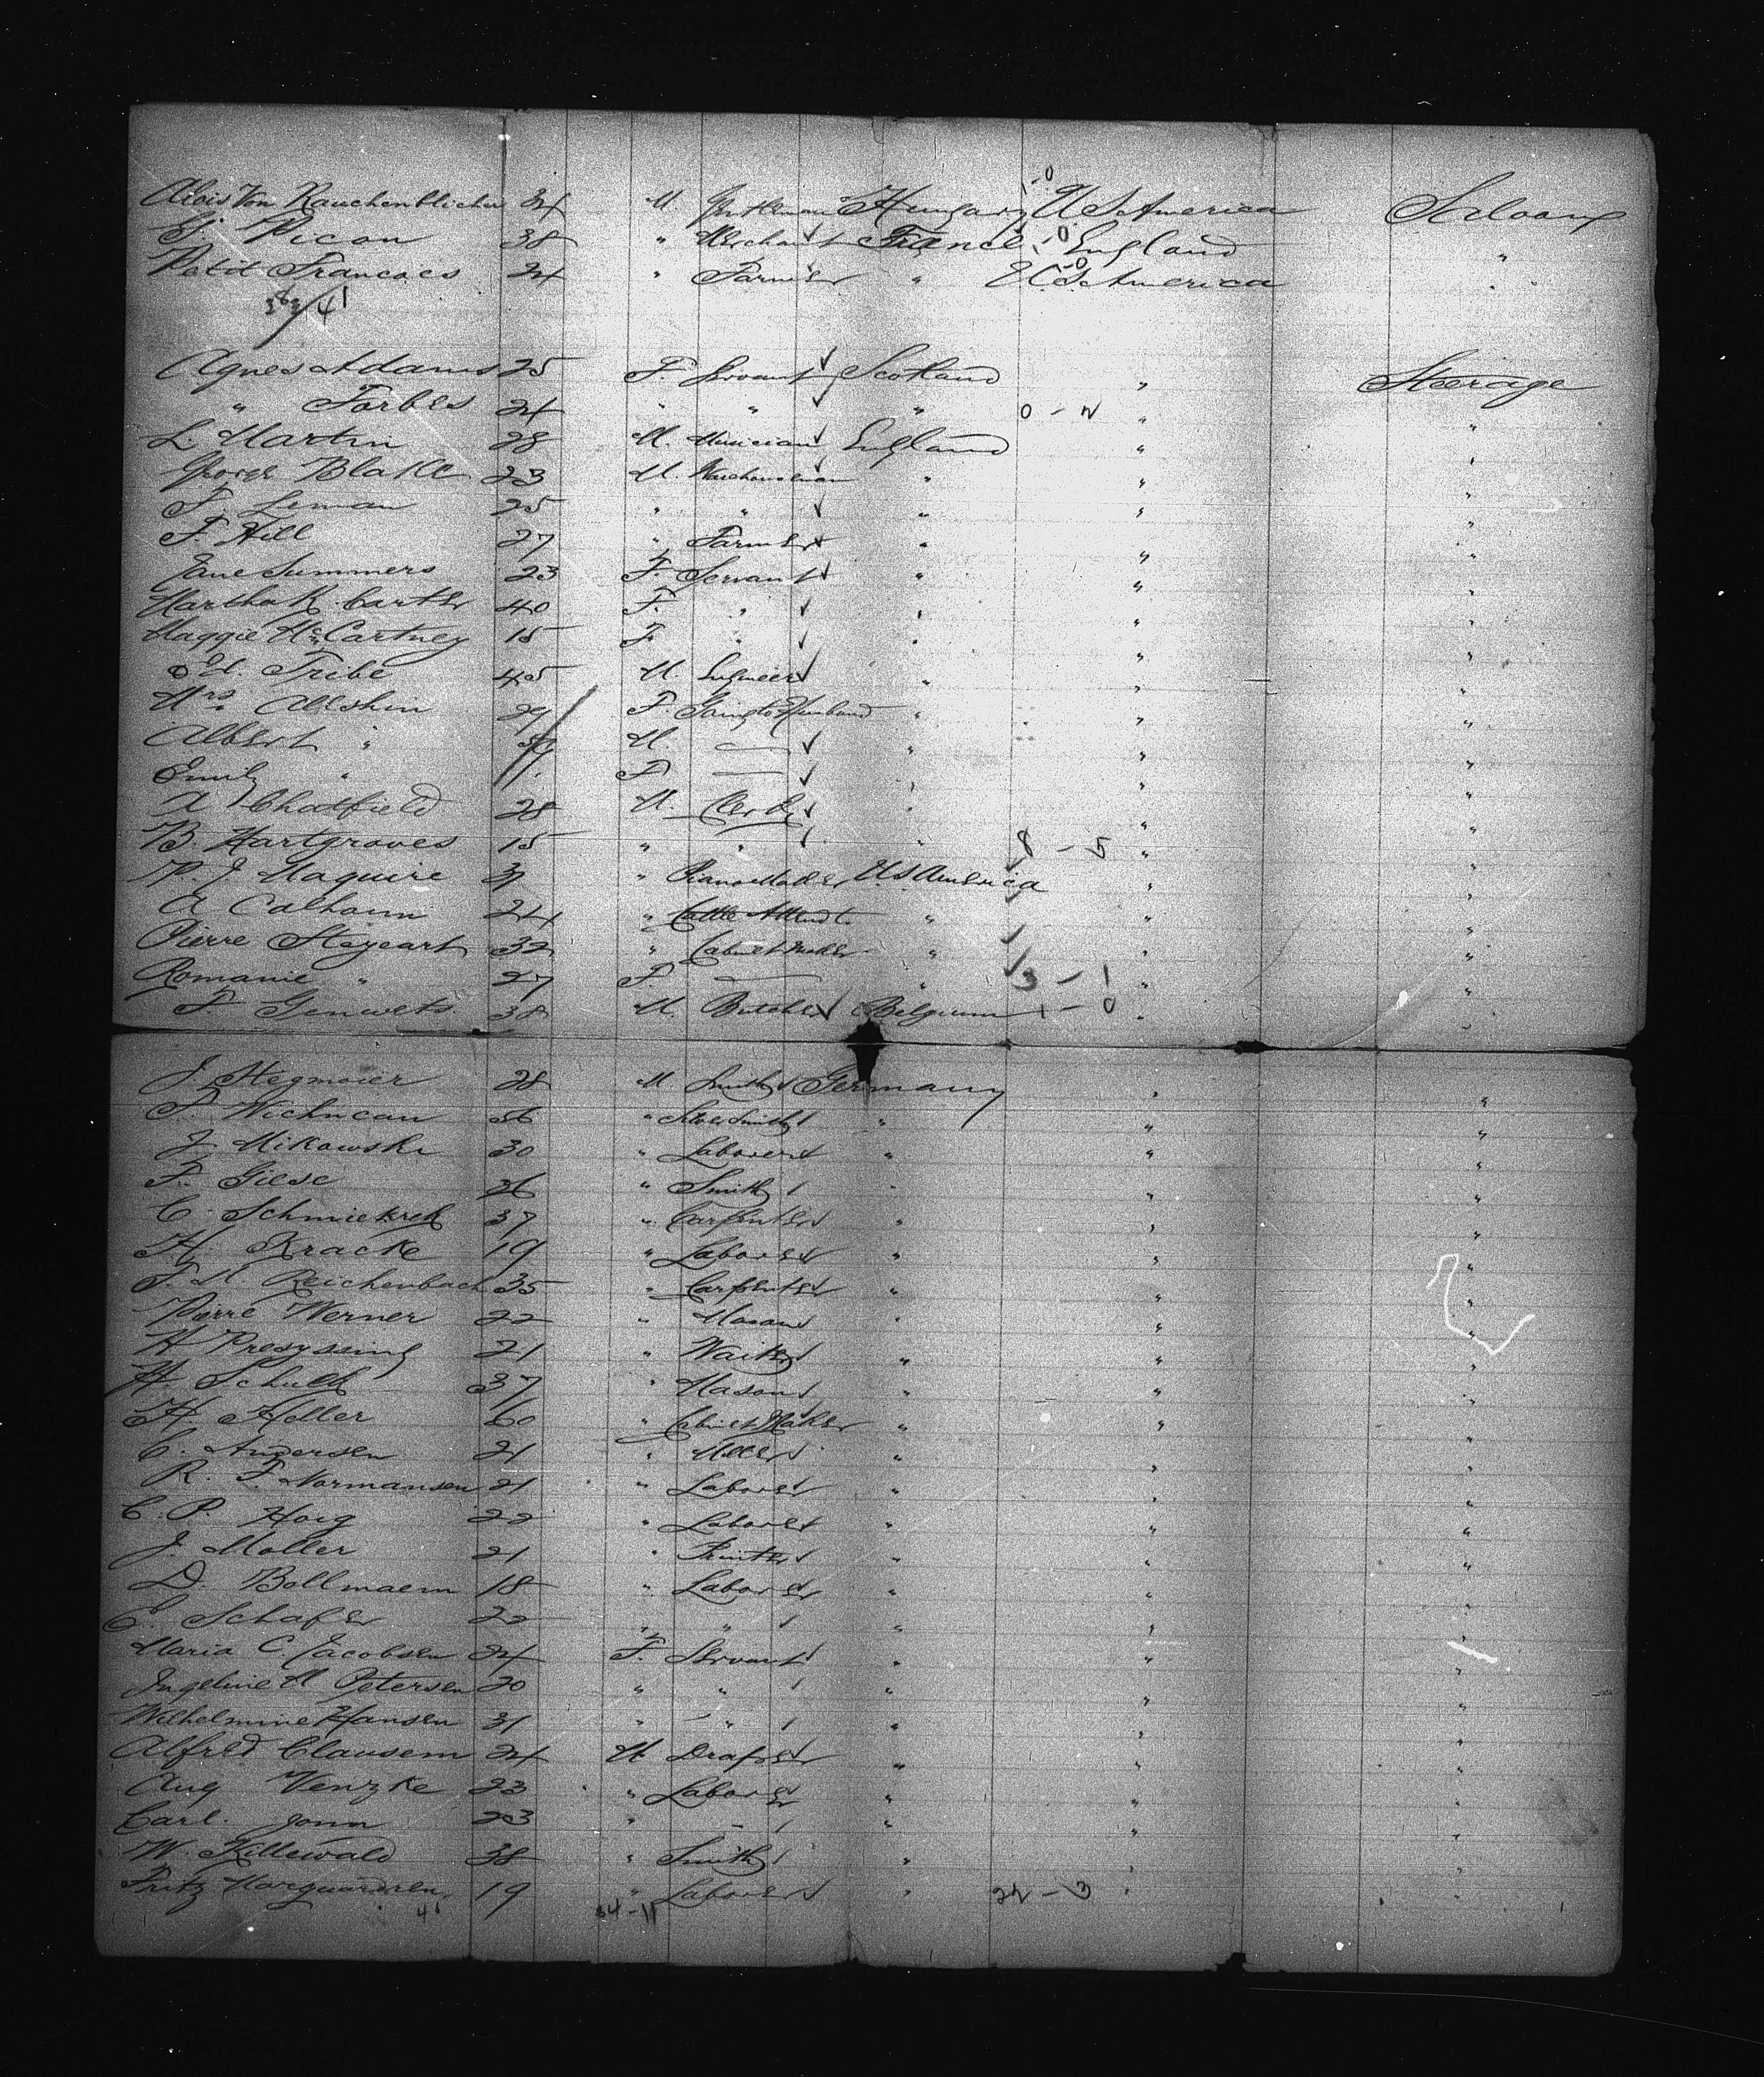 Alois Von Rauchenblicher 34 M Gentleman Hungary 1-0 U S America Saloon
Picon 38 " Merchant France 1-0 England "
Petit Francoes 24 " Farmer " 1-0 U S America "
41
Agnes Adams 25 F. Servant Scotland " Steerage
" Forbes 24 " " " 0-2 " "
L. Martin 28 M. Musician England " "
George Blake 23 M. Warehouseman " " "
F. Leman 25 " " " " "
F. Hill 27 " Farmer " " "
Jane Summers 23 F. Servant " " "
Martha K. Carter 40 F. " " " "
Maggie McCartney 15 F " " " "
Tribe 45 M. Engineer " " "
Mrs Allshin 29 F. Going to Husband " " "
Albert " M. — " " "
Emily " F — " " "
A Chatfield 28 M. Clerk " " "
B. Hartgroves 15 " " " 8-5 " "
P. J. Maguire 31 " Piano Maker U S America " "
A Calhoun 24 " Cattle Attendt. " " "
Pierre Stegeart 32 " Cabinet Maker " " "
Romanie " 27 F. — " 3-1 " "
F Genwets 38 M. Butcher Belgium 1-0 " "
J. Stegmaier 28 M Smith Germany " "
Wichncan 56 " Silver Smith " " "
J. Mikowski 30 " Laborer " " "
F. Giese 26 " Smith " " "
C. 37 " Carpenter " " "
H. Kracke 19 " Laborer " " "
F. M. Reichenbach 35 " Carpenter " " "
Pierre Werner 22 " Mason " " "
H Presyssing 21 " Waiter " " "
H. Schulth 37 " Mason " " "
H. Heller 60 " Cabinet Maker " " "
C. Andersen 21 " Miller " " "
R. F. Normansen 21 " Laborer " " "
C. P. Hoig 22 " Laborer " " "
J. Moller 21 " Printer " " "
D. Bollmaem 18 " Laborer " " "
E. Schafer 22 " " " " "
Maria C Jacobsen 24 F. Servant " " "
Ingeline M Petersen 20 " " " " "
Wilhelmine Hansen 31 " " " " "
Alfred Clausem 24 M Draper " " "
Aug Venzke 23 " Laborer " " "
Carl. Jonn 23 " " " " "
W. Killewald 38 " Smith " " "
Fritz Marquardsen 19 " Laborer " 22-3 " "
41 34-11